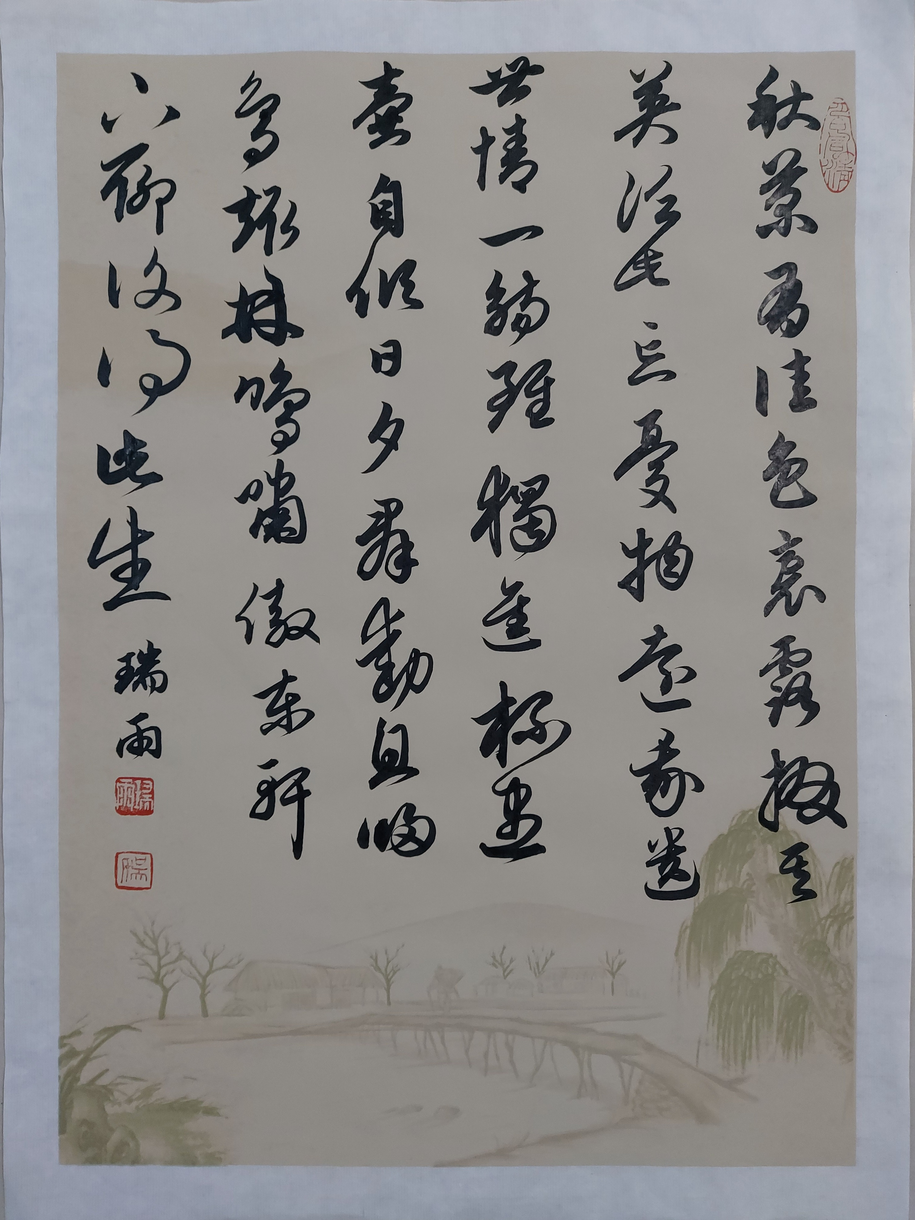 秋菊有佳色裛露掇其
英泛此忘憂物遠我遺
世情一觴雖獨進杯盡
壺自傾日夕群動息歸
鳥趨林鳴嘯傲東軒
下聊復得此生 瑞雨
瑞雨